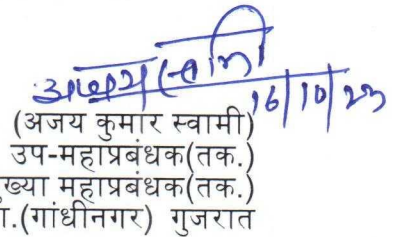 अजय स्वामी
16/10/23
(अजय कुमार स्वामी)
उप-महाप्रबंधक(तक.)
ख्या महाप्रबंधक(तक.)
.(गांधीनगर) गुजरात